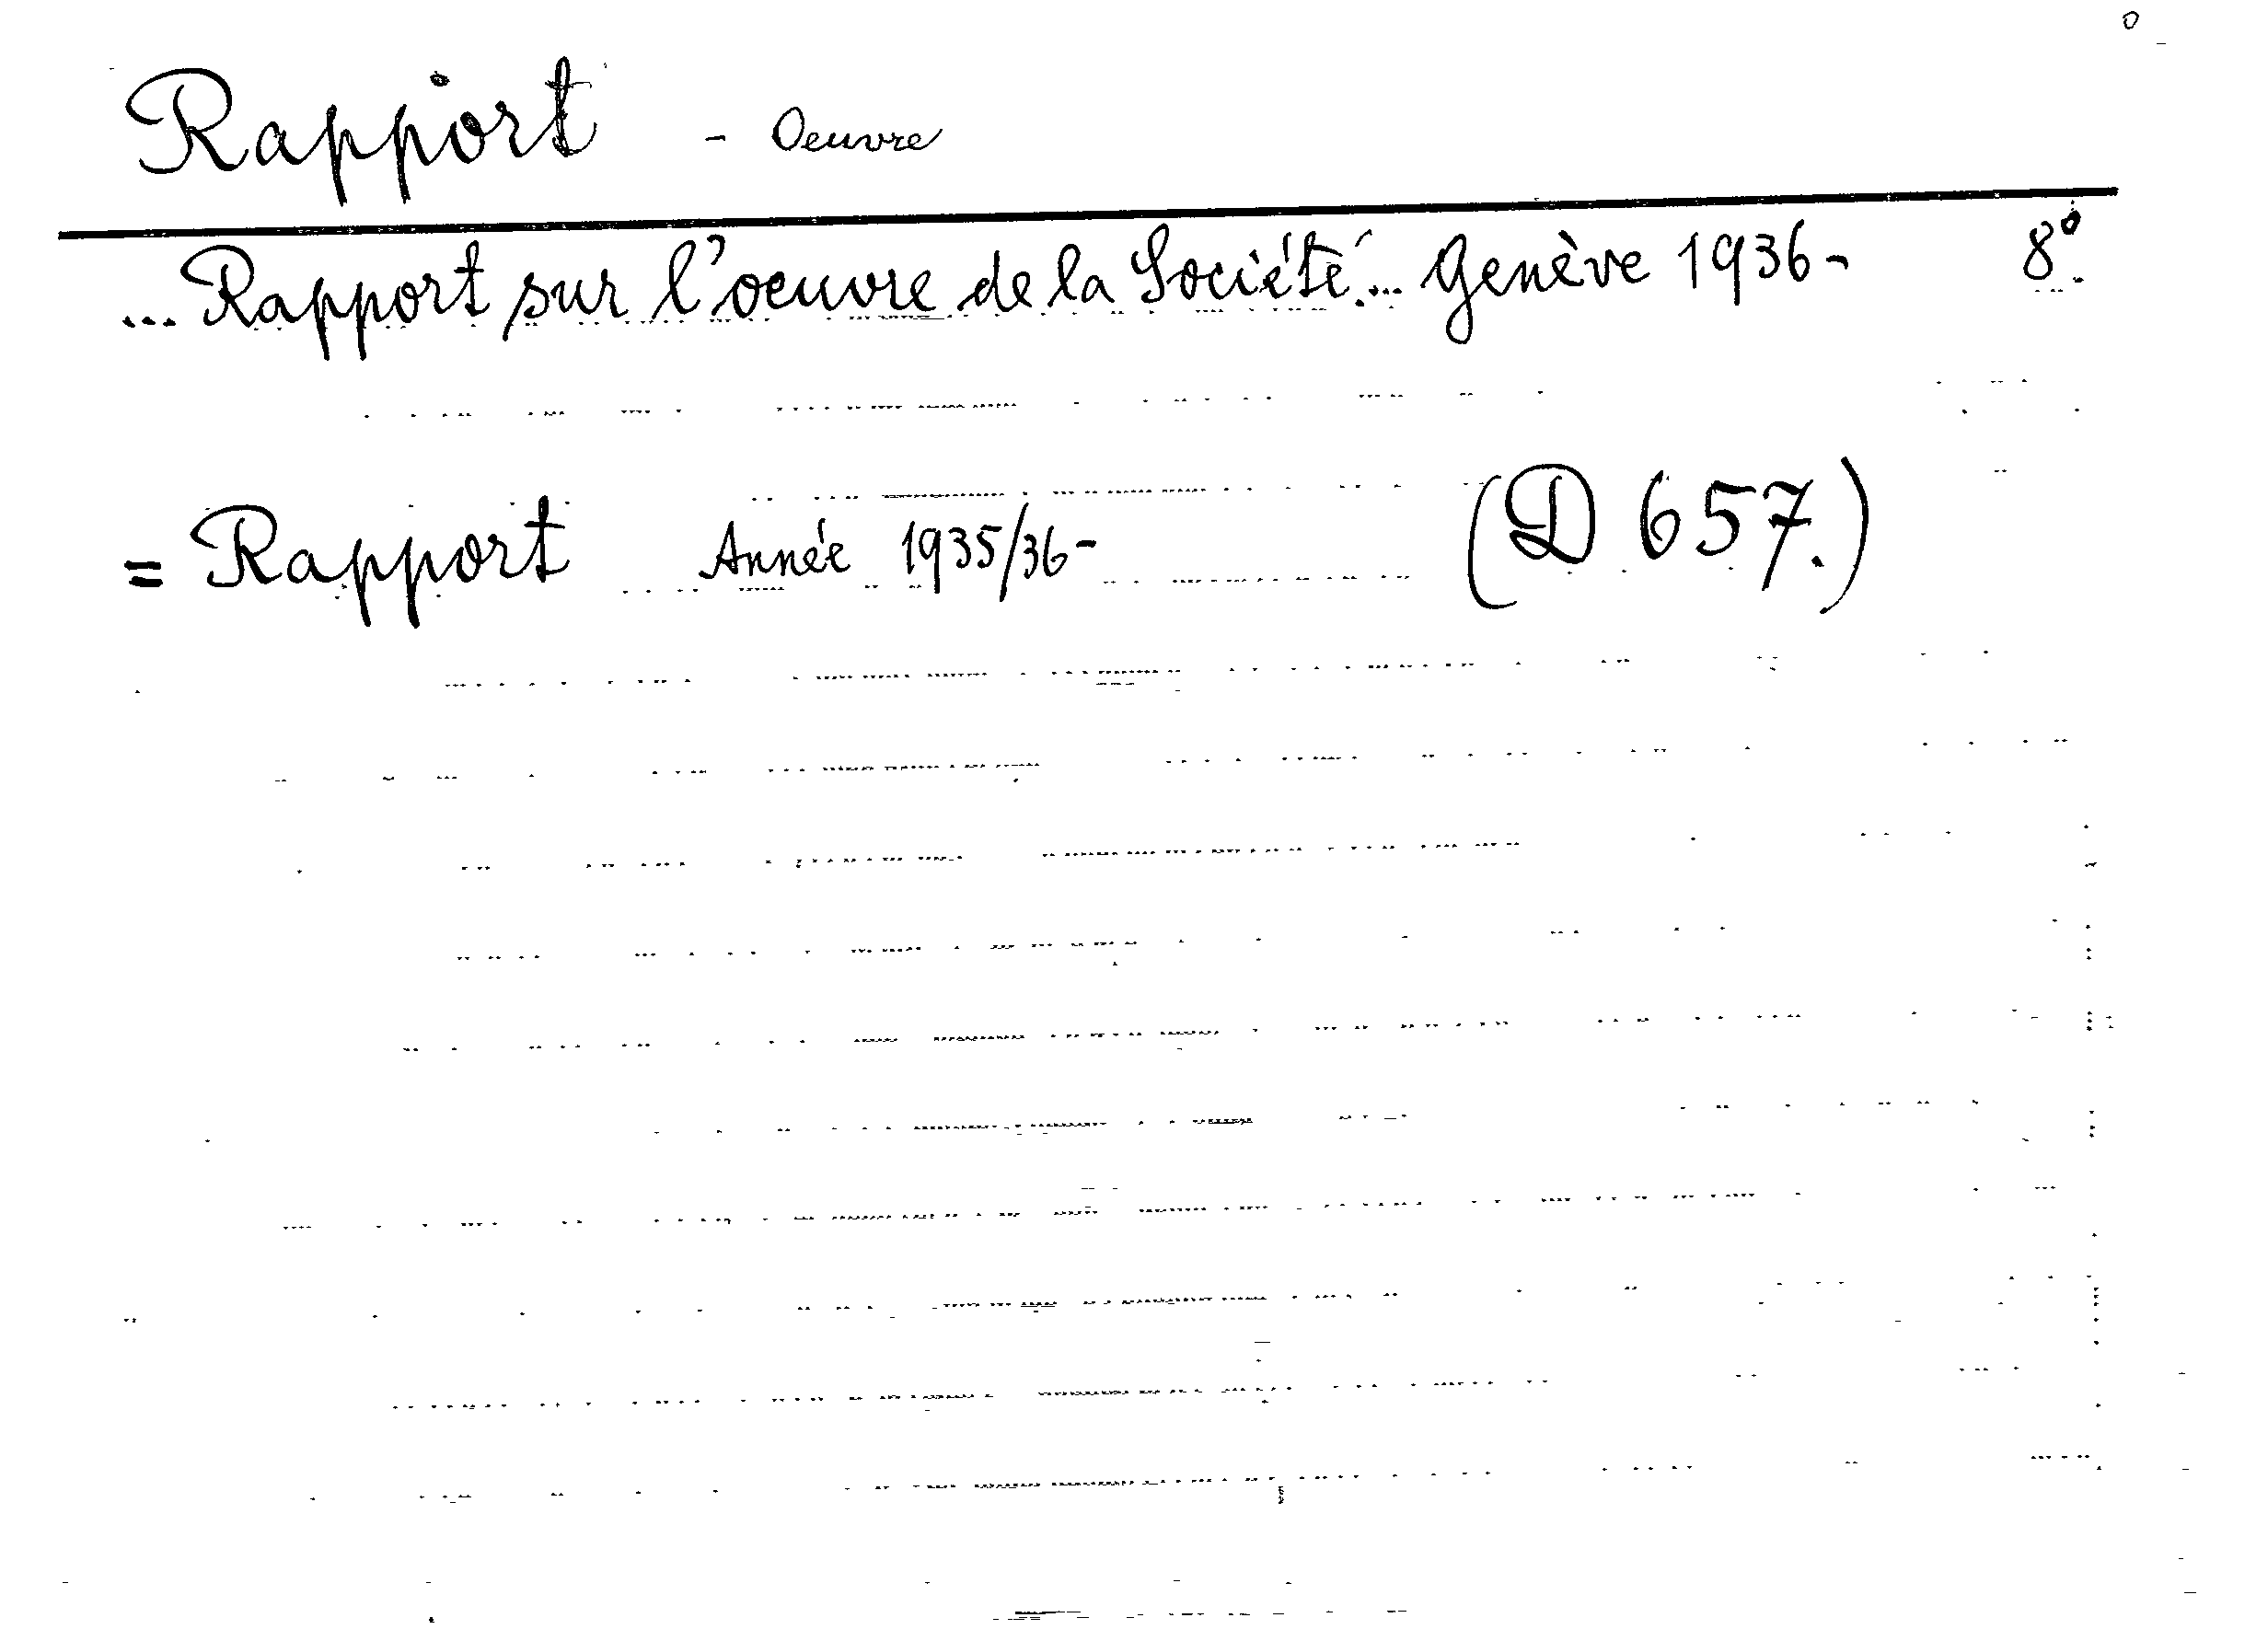 Rapport - Oeuvre
... Rapport sur l'oeuvre de la Société... Genève 1936- 8°.
= Rapport Année 1935/36- (D 657.)